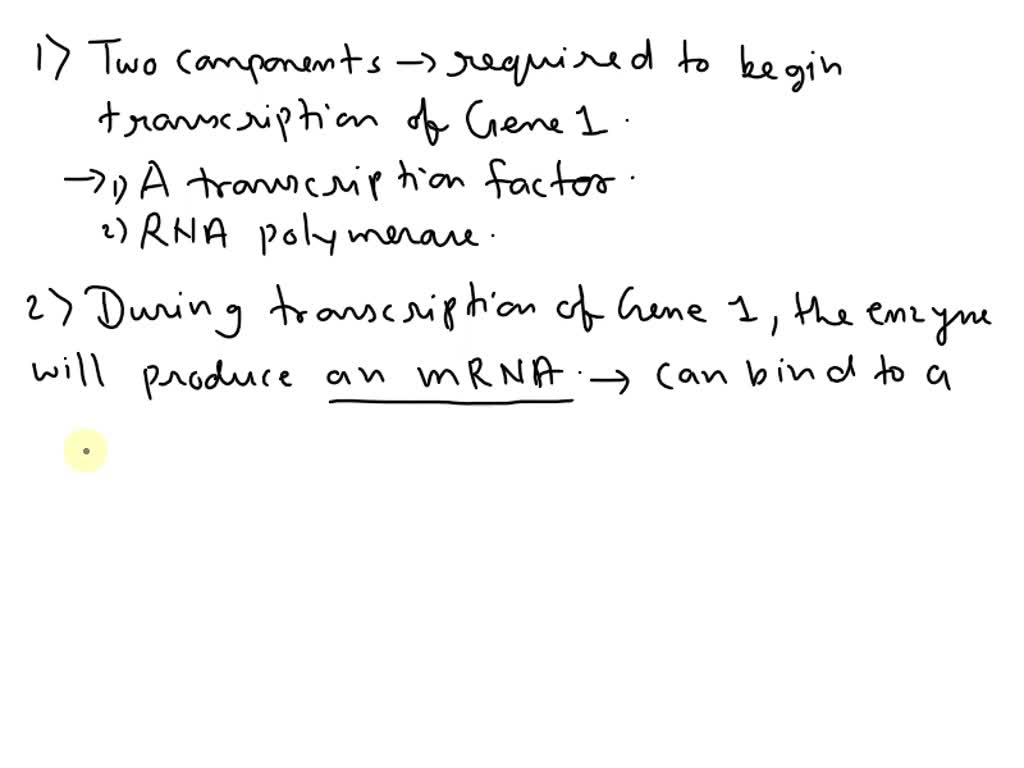 1) Two components → required to begin
transcription of Gene 1.
→ 1) A transcription factor.
2) RNA polymerase.
2) During transcription of Gene 1, the enzyme
will produce an mRNA. → can bind to a